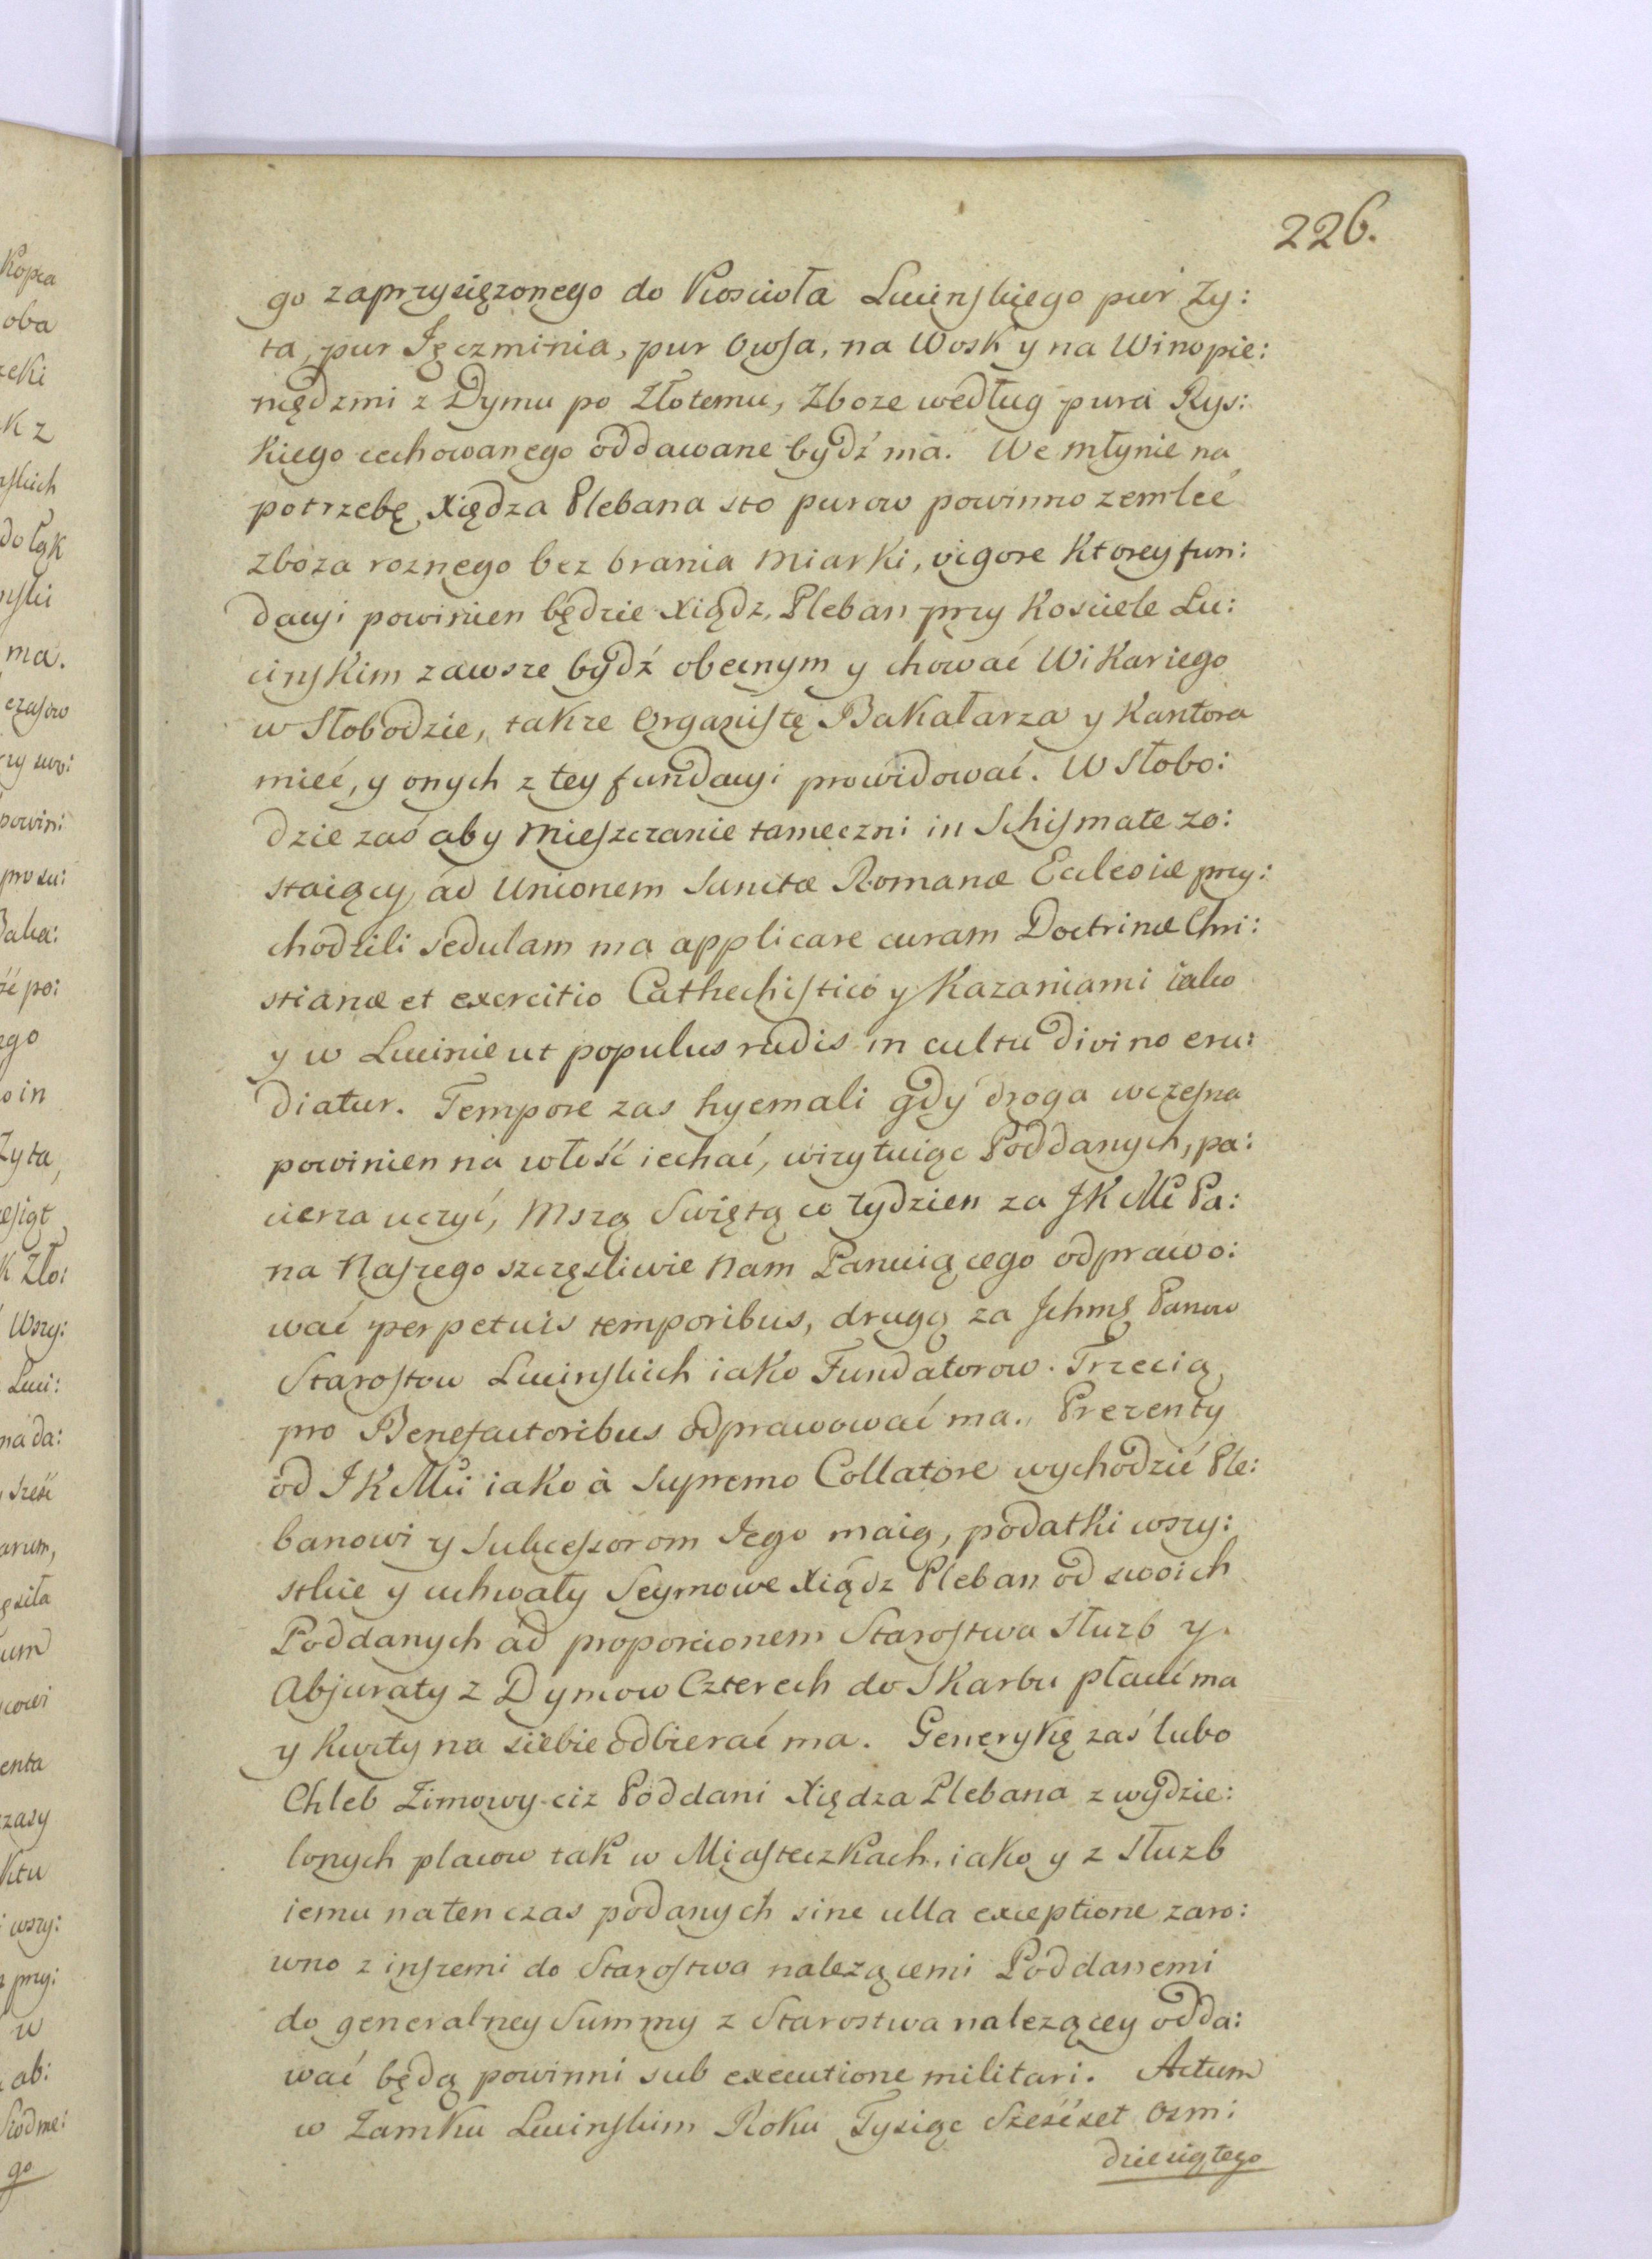 226.
go zaprzysięzonego do Koscioła Lucinskiego pur Zy:
ta, pur Jęczminia, pur Owsa, na Wosk y na Wino pie:
niędzmi z Dymu po Złotemu, Zboze według pura Rys:
kiego cechowanego oddawane bydź ma. We młynie na
potrzebę Xiędza Plebana sto purow powinno zemleć
zboza roznego bez brania miarki, vigore Ktorey fun:
dacyi powinien będzie Xiądz Pleban przy Kosciele Lu:
cinskim zawsze bydź obecnym y chować Wikariego
w Słobodzie, takze Organistę Bakałarza y Kantora
mieć, y onych z tey fundacyi prowidować. W Słobo:
dzie zaś aby Mieszczanie tameczni in Schismate zo:
staiący ad Unionem Sanctæ Romanæ Ecclesiæ przy:
chodzili sedulam ma applicare curam Doctrinæ Chri:
stianæ et exercitio Cathechistico y Kazaniami iako
y w Lucinie ut populus rudis in cultu divino eru:
diatur. Tempore zas hyemali gdy droga wczesna
powinien na włość iechać, wizytuiąc Poddanych, pa:
cierza uczyć, Mszą Swiętą co tydzien za JK Mć Pa:
na Naszego szczęsliwie Nam Panuiącego odprawo:
wać perpetuis temporibus, drugą za Jchmę Panow
Starostow Lucinskich iako Fundatorow. Trzecią
pro Benefactoribus odprawować ma. Prezenty
od JKMći iako à Supremo Collatore wychodzić Ple:
banowi y Sukcessorom Jego maią, podatki wszy:
stkie y uchwały Seymowe Xiądz Pleban od swoich
Poddanych ad proporcionem Starostwa Słuzb y
Abjuraty z Dymow Czterech do Skarbu płacić ma
y kwity na siebie odbierać ma. Generykę zaś lubo
Chleb Zimowy ciz Poddani Xiędza Plebana z wydzie:
lonych placow tak w Miasteczkach, iako y z Słuzb
iemu na ten czas podanych sine ulla exceptione zaro:
wno z inszemi do Starostwa nalezącemi Poddanemi
do generalney Summy z Starostwa nalezącey odda:
wać będą powinni sub executione militari. Actum
w Zamku Lucinskim Roku Tysiąc Sześćset Osm:
dziesiątego